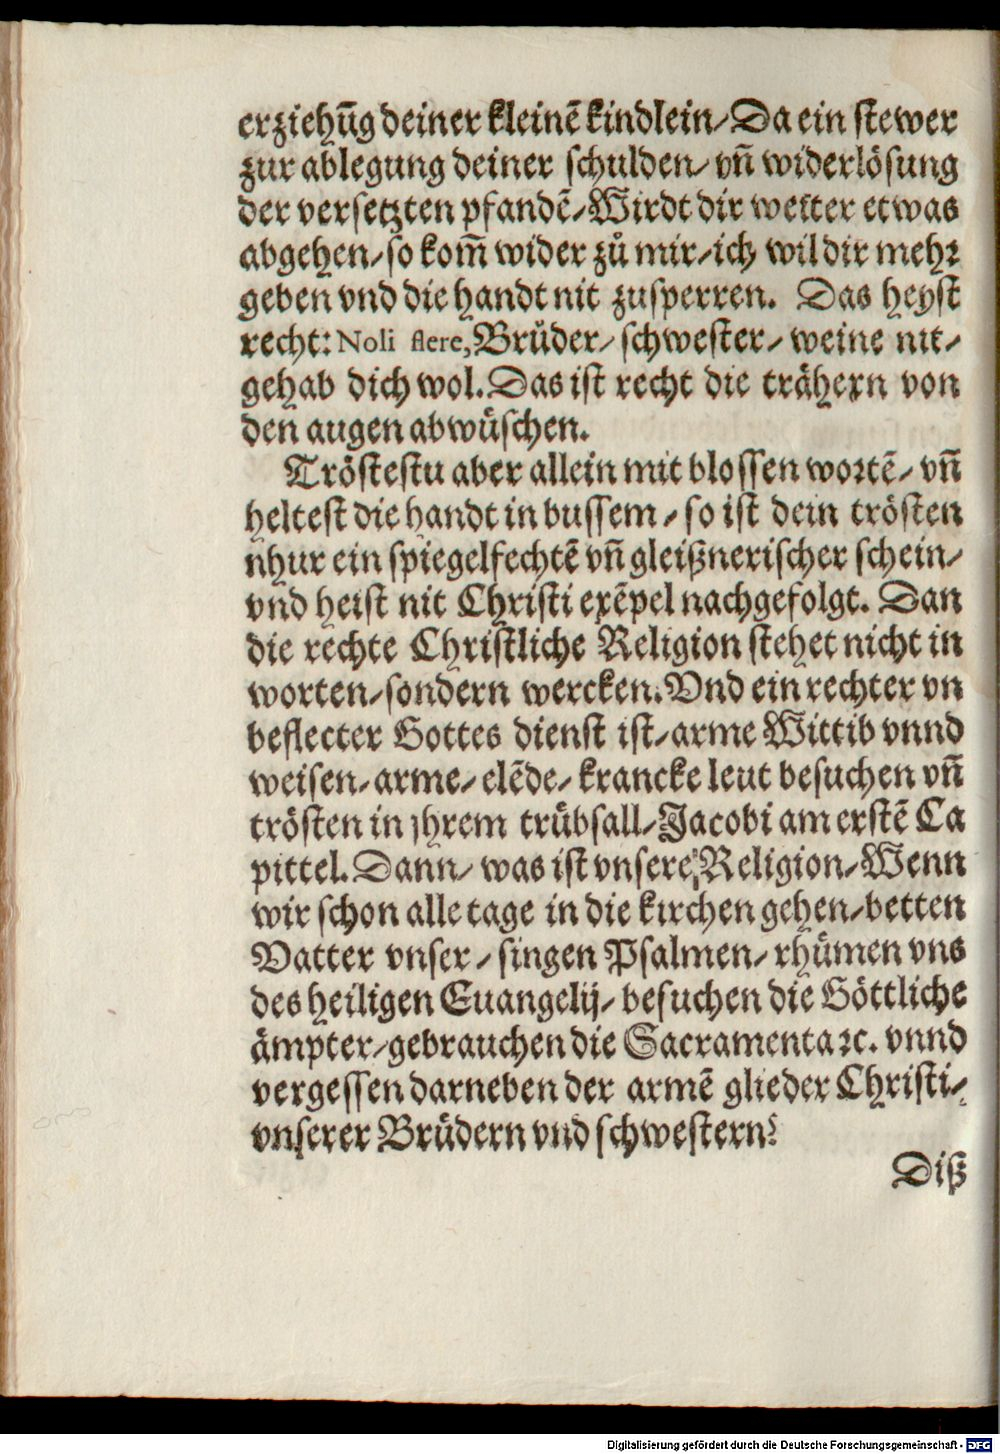 erziehūg deiner kleinē kindlein/ Da ein stewer
zur ablegung deiner schulden/ vn̄ widerlösung
der versetzten pfandē/ Wirdt dir weitter etwas
abgehen/ so kom̄ wider zů mir/ ich wil dir mehr
geben vnd die handt nit zusperren. Das heyst
recht: Noli flere, Brüder/ schwester/ weine nit/
gehab dich wol. Das ist recht die trähern von
den augen abwüschen.
Tröstestu aber allein mit blossen wortē/ vn̄
heltest die handt in bussem/ so ist dein trösten
nhur ein spiegelfechtē vn̄ gleißnerischer schein/
vnd heist nit Christi exēpel nachgefolgt. Dan
die rechte Christliche Religion stehet nicht in
worten/ sondern wercken. Vnd ein rechter vn
beflecter Gottes dienst ist/ arme Wittib vnnd
weisen/ arme/ elēde/ krancke leut besuchen vn̄
trösten in jhrem trübsall/ Jacobi am erstē Ca
pittel. Dann/ was ist vnsere Religion/ Wenn
wir schon alle tage in die kirchen gehen/ betten
Vatter vnser/ singen Psalmen/ rhümen vns
des heiligen Euangelij/ besuchen die Göttliche
ämpter/ gebrauchen die Sacramenta ꝛc. vnnd
vergessen darneben der armē glieder Christi/
vnserer Brüdern vnd schwestern?
Diß
Digitalisierung gefördert durch die Deutsche Forschungsgemeinschaft - DFG